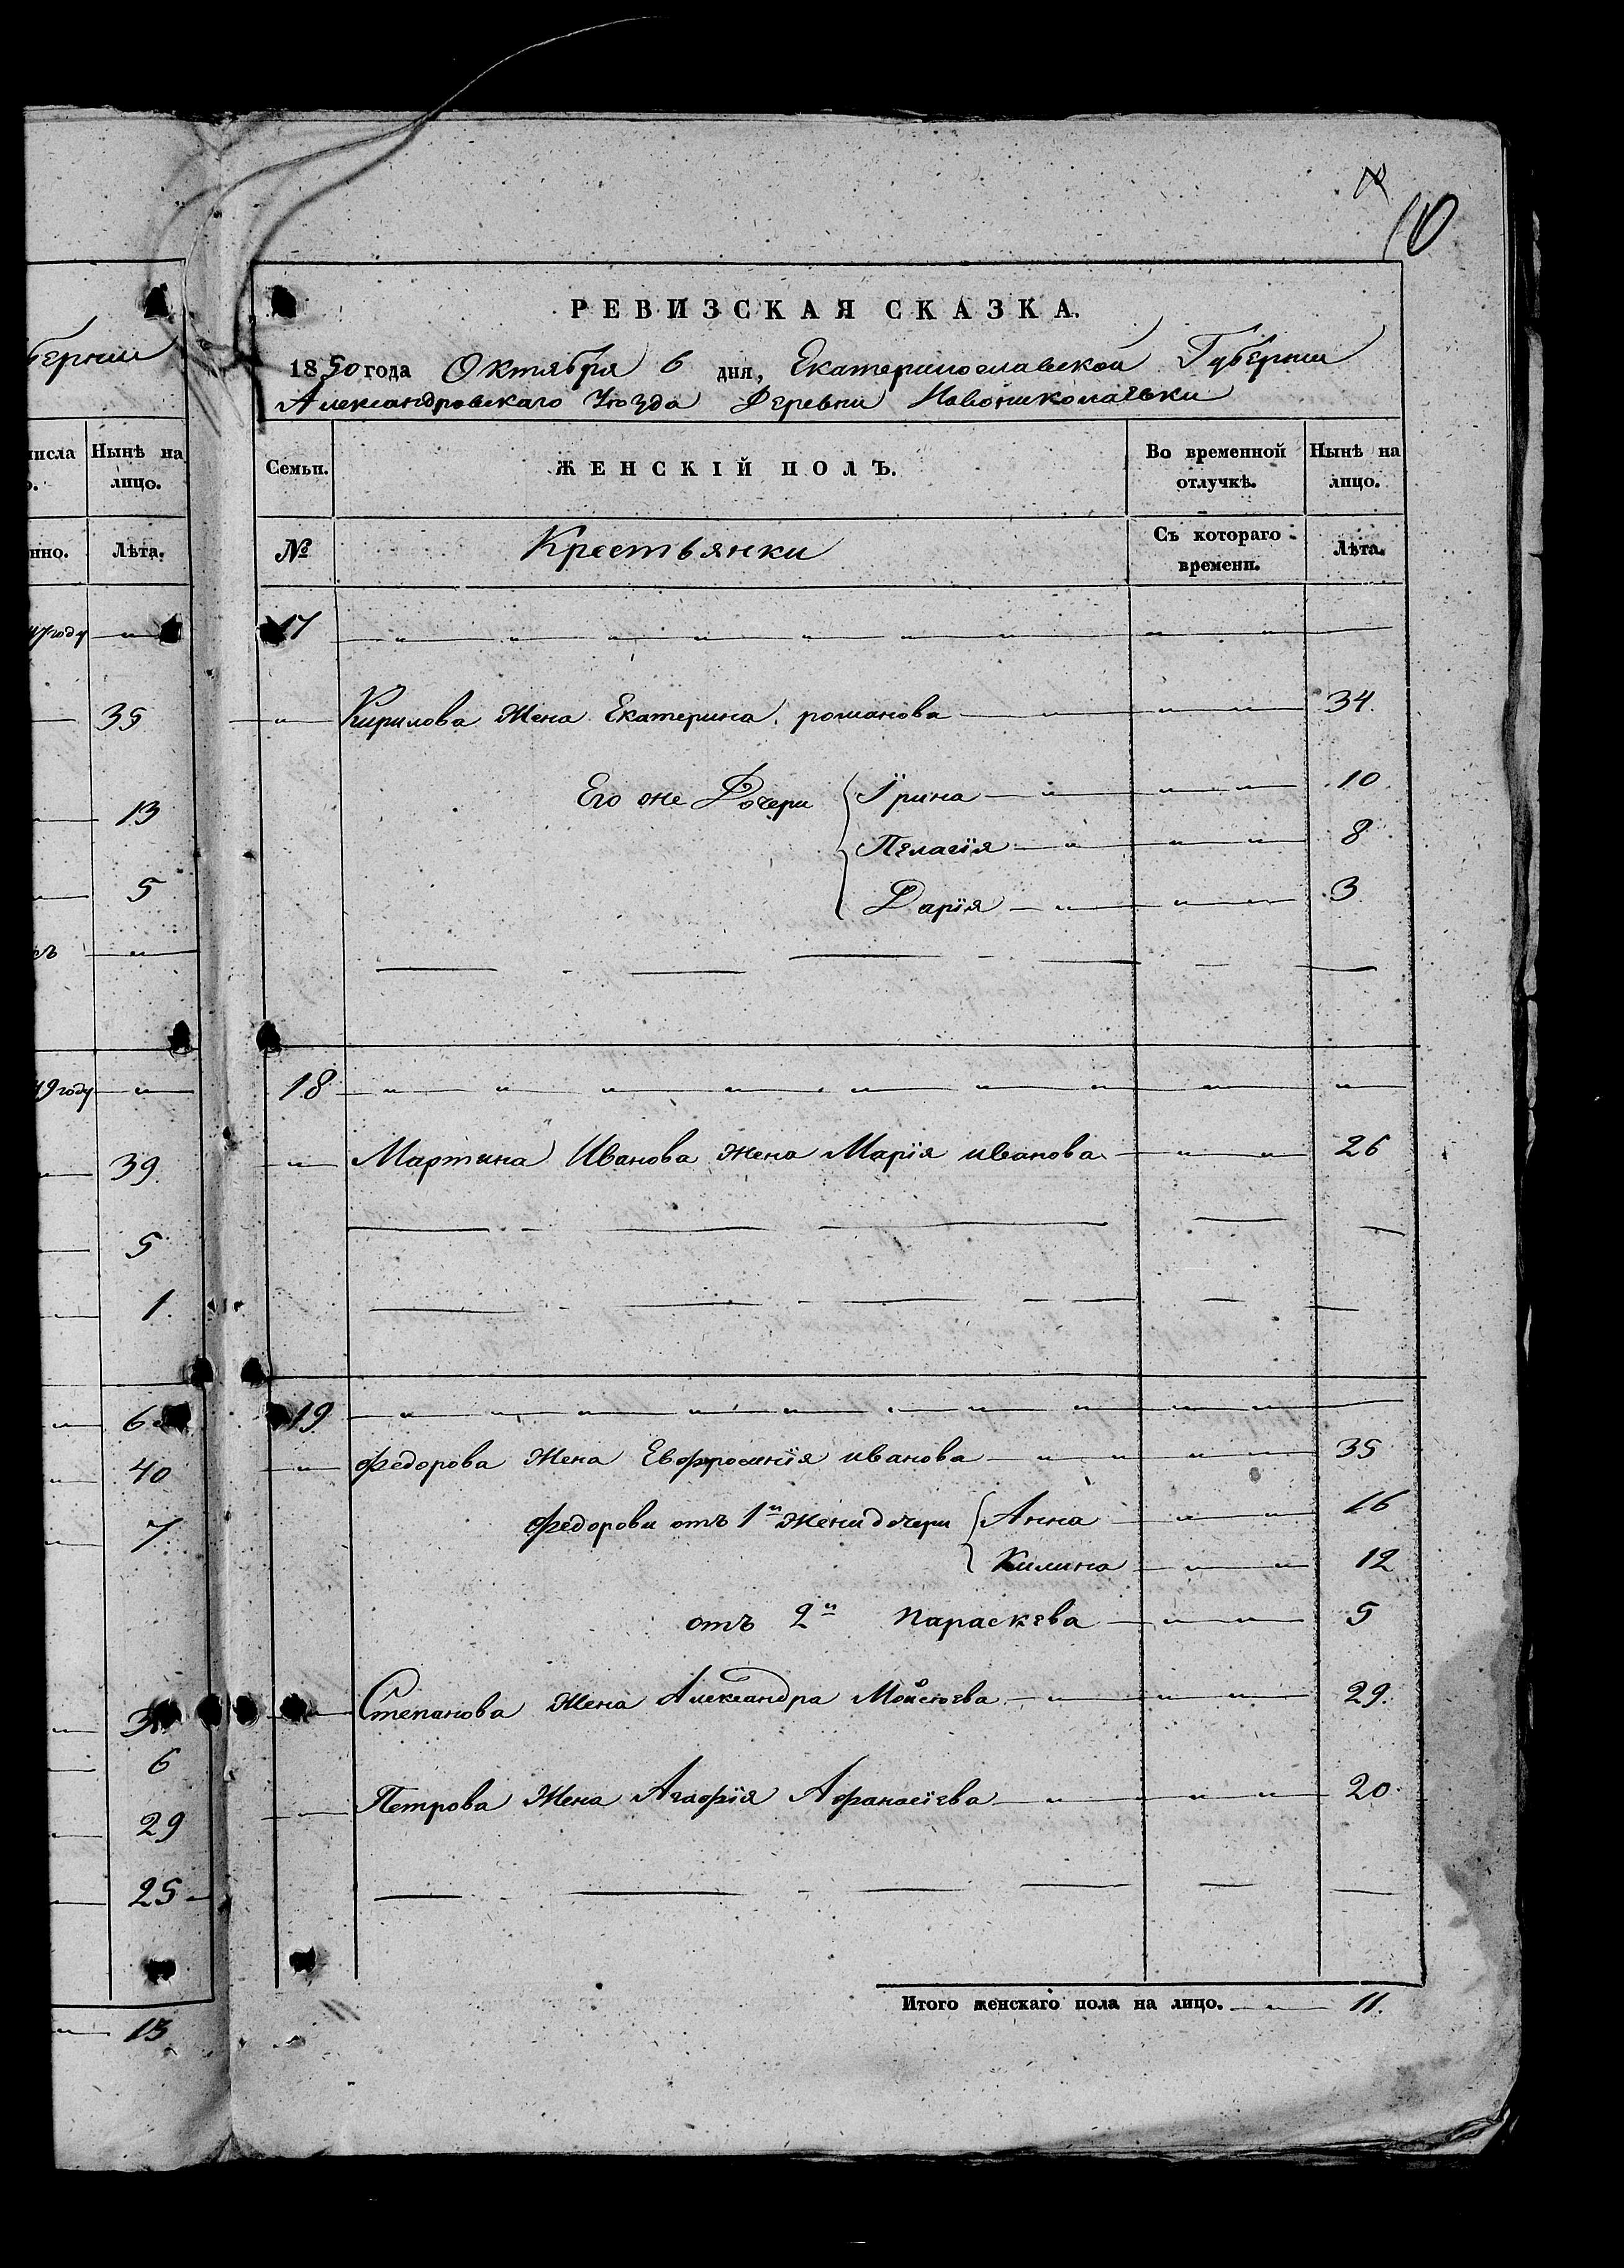 10
РЕВИЗСКАЯ СКАЗКА.
1850 года Октября 6 дня, Екатеринославской Губернии
Александровскаго Уѣзда Деревни Новониколаевки
Семьи. ЖЕНСКІЙ ПОЛЪ. Во временной отлучкѣ. Нынѣ на лицо.
№ Крестьянки Съ котораго времени. Лѣта.
17
Кирилова Жена Екатерина романова 34.
Его же Дочери Ирина 10
Пелагія 8
Дарія 3
18
Мартина Иванова жена Марія иванова 26
19
Федорова Жена Евфросинія иванова 35
Федорови отъ 1й Жени дочери Анна 16
Килина 12
отъ 2й Параскева 5
Степанова Жена Александра Мойсѣева 29.
Петрова Жена Агафія Афанасіева 20
Итого женскаго пола на лицо. 11.
бернии
числа Нынѣ на лицо.
нно. Лѣта.
году
35
13
5
съ
49 году
39
5
1
6
40
7
6
29
25
13